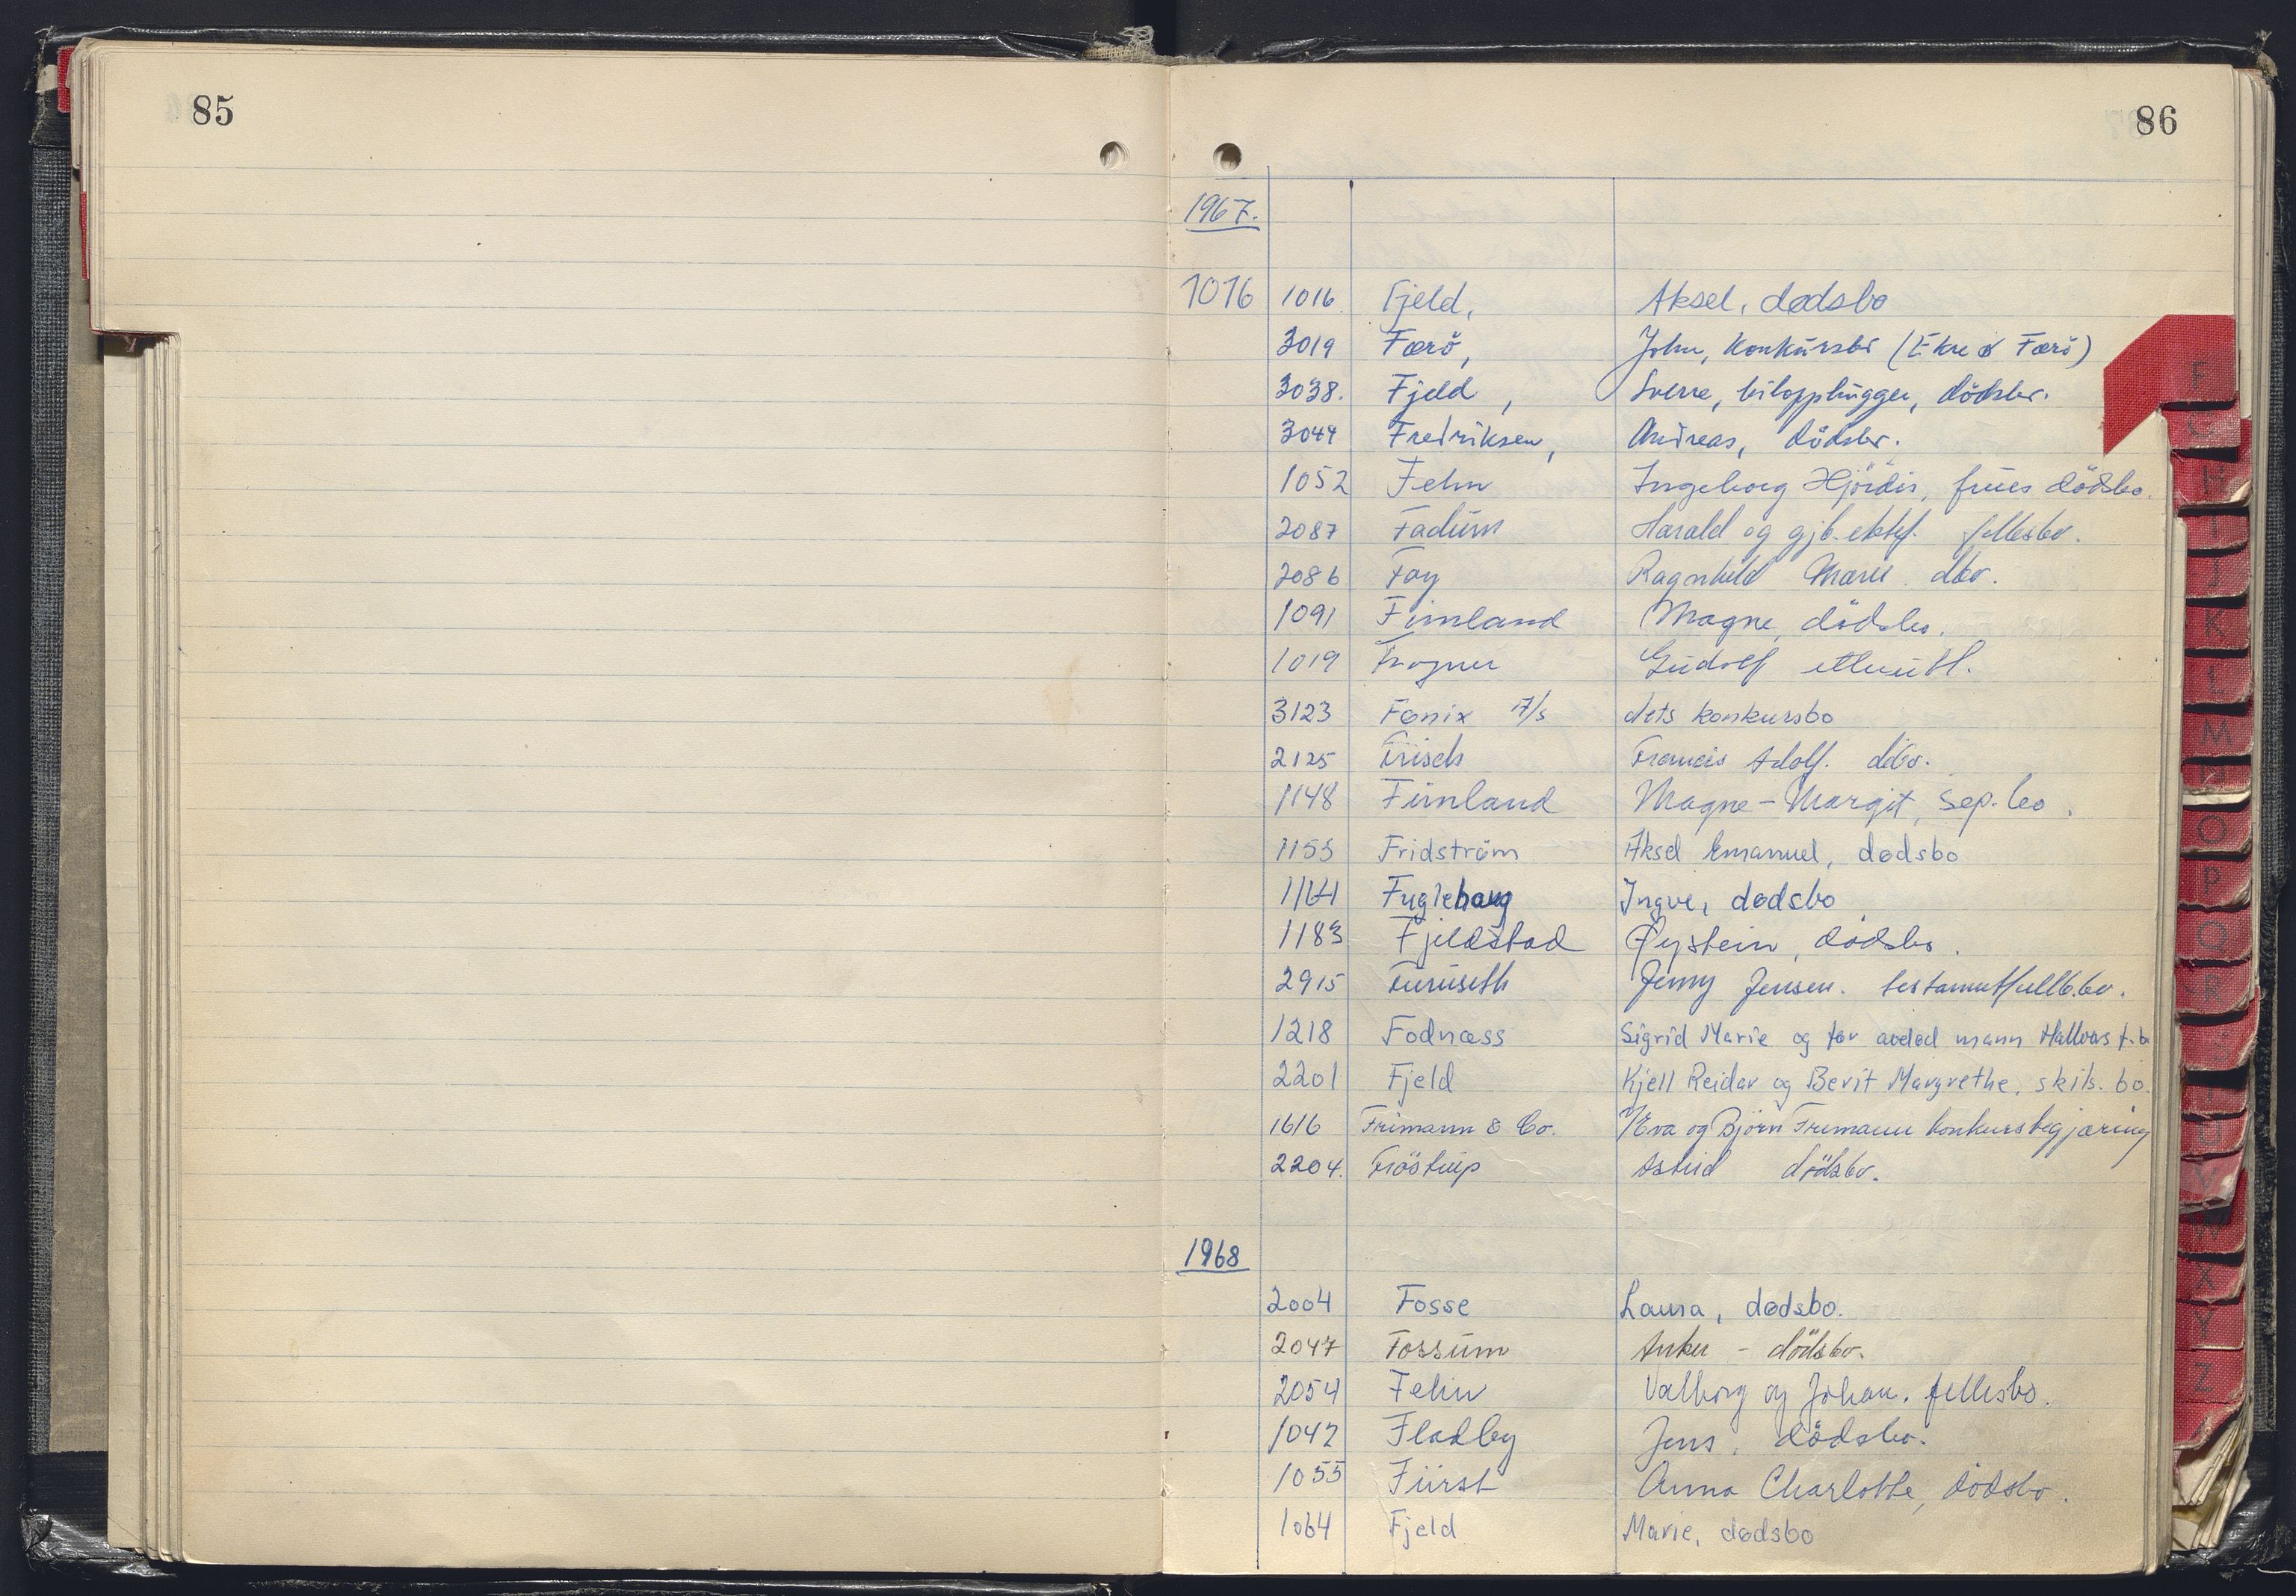 85
86
1967.
1016 1016 Fjeld, Aksel, dødsbo
3019 Færö, John, konkursbo (Ekre & Færö)
3038. Fjeld, Sverre, bilopphugger, dödsbo.
3044 Fredriksen, Andreas, dödsbo.
1052 Fehn Ingeborg Hjördis, frues dödsbo.
2087 Fadum Harald og gjb. ektef. fellesbo.
2086 Fay Ragnhild Marie dbo.
1091 Finnland Magne, dödsbo.
1019 Frogner Gudolf
3123 Fønix A/S dets konkursbo
2125 Frisch Francis Adolf. dbo.
1148 Finnland Magne - Margit, sep. bo.
1155 Fridström Aksel Emanuel, dødsbo
1164 Fuglehaug Ingve, dødsbo
1183 Fjeldstad Øystein, dödsbo.
2915 Furuseth Jenny Jensen.
1218 Fodnæss Sigrid Marie og før avdød mann Hallvas f.b
2201 Fjeld Kjell Reidar og Berit Margrethe, skils. bo.
1616 Frimann & Co. V/Eva og Björn Frimann konkursbegjæring
2204. Fröstrup Astrid dödsbo.
1968
2004 Fosse Laura, dødsbo.
2047 Fossum Anker - dödsbo.
2054 Fehn Valborg og Johan. fellesbo.
1042 Fladby Jens, dödsbo.
1055 Fürst Anna Charlotte, dödsbo.
1064 Fjeld Marie, dødsbo
F
G
H
I
J
K
L
M
N
O
P
Q
R
S
T
U
V
W
X
Y
Z